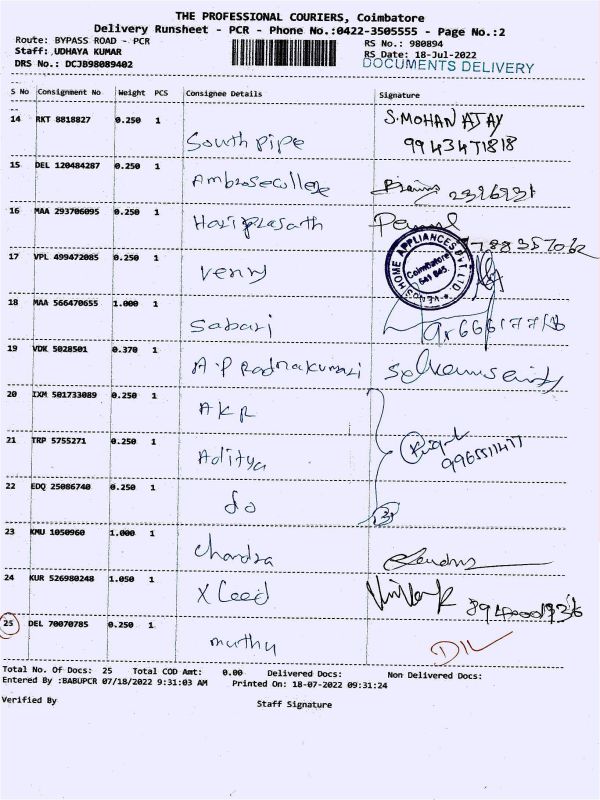 THE PROFESSIONAL COURIERS, Coimbatore
Delivery Runsheet - PCR - Phone No.:0422-3505555 - Page No.:2
Route: BYPASS ROAD - PCR
RS No.: 980894
Staff: UDHAYA KUMAR
RS Date: 18-Jul-2022
DRS No.: DCJB98089402
DOCUMENTS DELIVERY
S No Consignment No Weight PCS Consignee Details Signature
14 RKT 8818827 0.250 1 South pipe S.MOHAN AJAY
9943471818
15 DEL 120484287 0.250 1 Ambrose college
16 MAA 293706095 0.250 1 Hariprasath
17 VPL 499472085 0.250 1 Venus
HOME APPLIANCES PVT. LTD.
Coimbatore
641 045.
18 MAA 566470655 1.000 1 Sabari
19 VDK 5028501 0.370 1 A.P Radhakumari
20 IXM 501733089 0.250 1 AKR
21 TRP 5755271 0.250 1 Aditya
22 EDQ 25086740 0.250 1 do
23 KMU 1050960 1.000 1 Chandra
24 KUR 526980248 1.050 1 X Ceed
25 DEL 70070785 0.250 1 muthu DIL
Total No. Of Docs: 25 Total COD Amt: 0.00 Delivered Docs: Non Delivered Docs:
Entered By :BABUPCR 07/18/2022 9:31:03 AM Printed On: 18-07-2022 09:31:24
Verified By Staff Signature